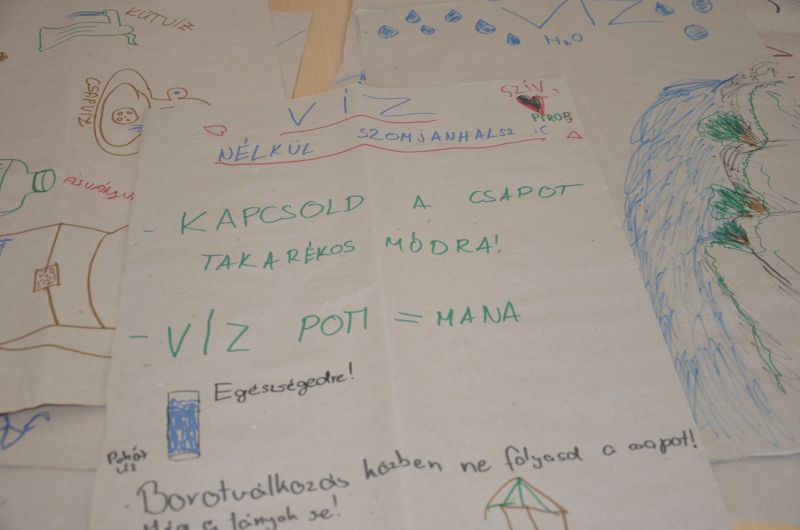 KÚTVÍZ
CSAPVÍZ
H₂O
VÍZ
SZÍV
PIROS
VÍZ
NÉLKÜL SZOMJANHALSZ :(
- KAPCSOLD A CSAPOT
TAKARÉKOS MÓDRA!
- VÍZ POTI = MANA
Egészségedre!
Pohár
víz
· Borotválkozás közben ne folyasd a csapot!
Még a lányok se!